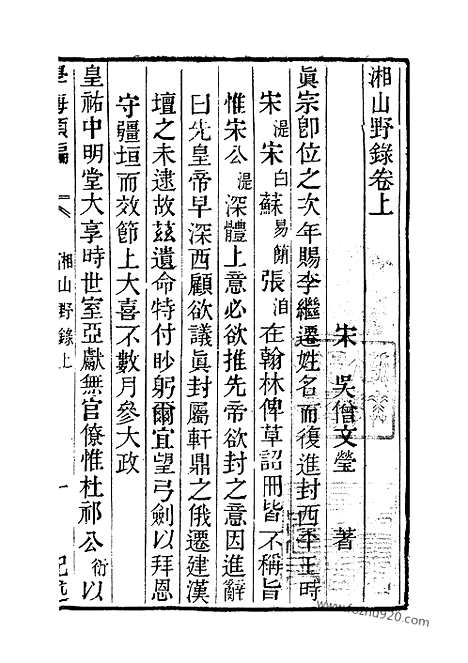 湘山野錄卷上
宋 吳僧文瑩 著
眞宗卽位之次年賜李繼遷姓名而復進封西平王時
宋湜宋白蘇易簡張洎在翰林俾草詔冊皆不稱旨
惟宋公湜深體上意必欲推先帝欲封之意因進辭
曰先皇帝早深西顧欲議眞封屬軒鼎之俄遷建漢
壇之未逮故茲遺命特付眇躬爾宜望弓劍以拜恩
守疆垣而效節上大喜不數月參大政
皇祐中明堂大享時世室亞獻無官僚惟杜祁公衍以
學海類編 湘山野錄上 一